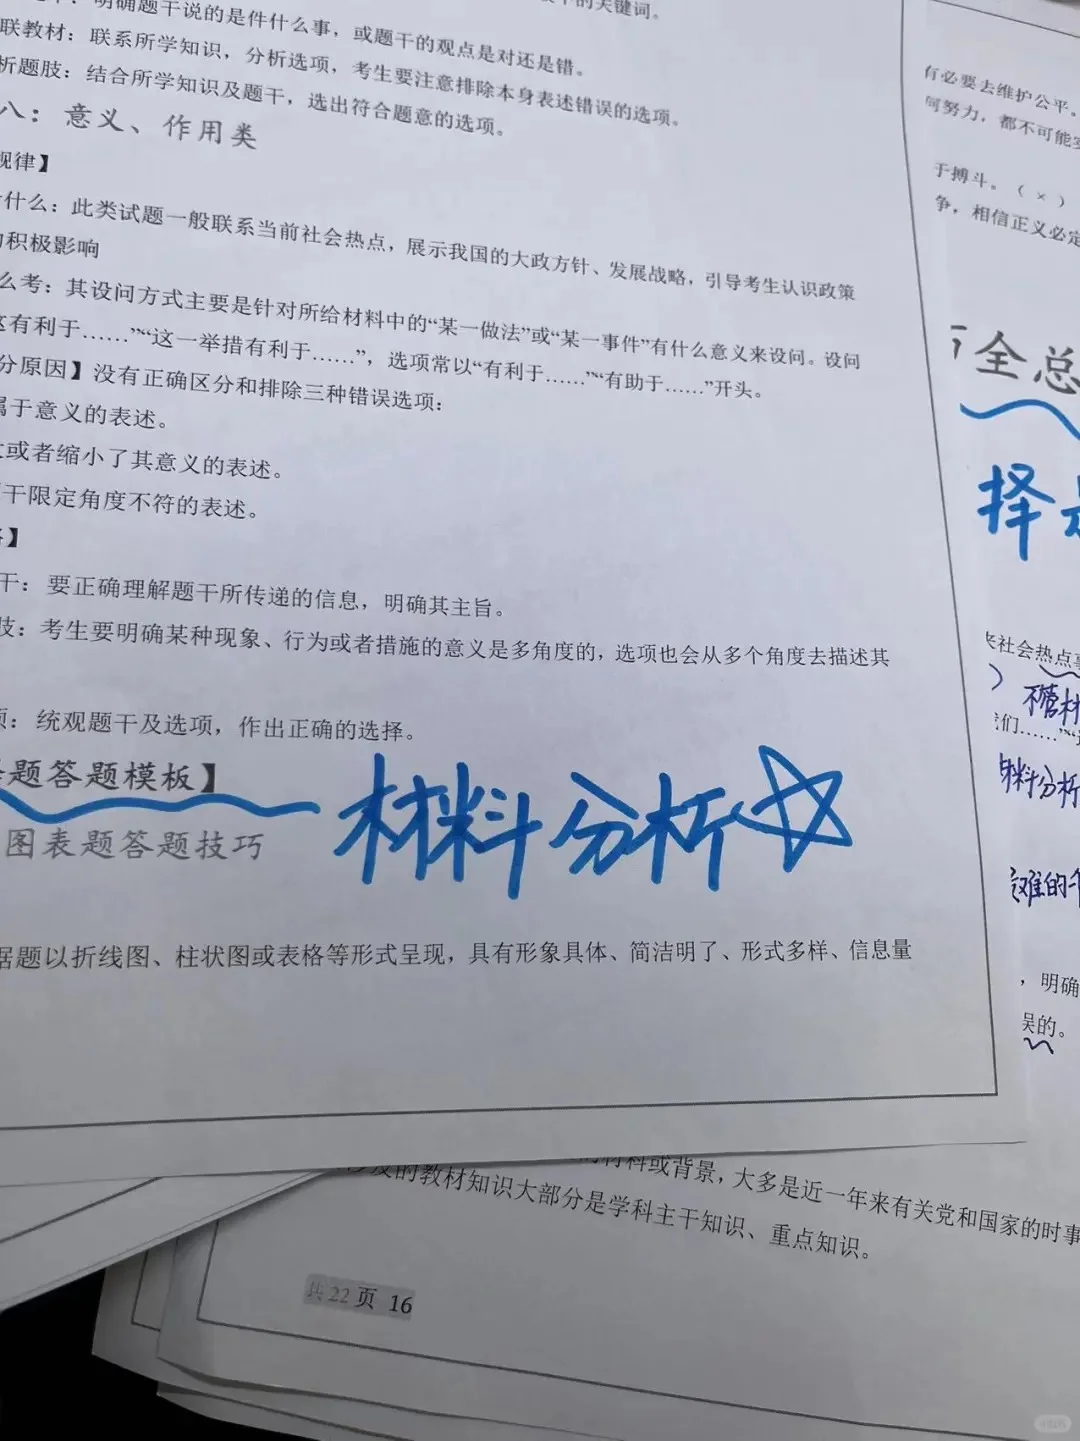 明确题干说的是件什么事，或题干的观点是对还是错。
联教材：联系所学知识，分析选项，考生要注意排除本身表述错误的选项。
析题肢：结合所学知识及题干，选出符合题意的选项。
八：意义、作用类
规律】
什么：此类试题一般联系当前社会热点，展示我国的大政方针、发展战略，引导考生认识政策
积极影响
么考：其设问方式主要是针对所给材料中的“某一做法”或“某一事件”有什么意义来设问。设问
这有利于……”“这一举措有利于……”，选项常以“有利于……”“有助于……”开头。
分原因】没有正确区分和排除三种错误选项：
属于意义的表述。
或者缩小了其意义的表述。
干限定角度不符的表述。
】
干：要正确理解题干所传递的信息，明确其主旨。
肢：考生要明确某种现象、行为或者措施的意义是多角度的，选项也会从多个角度去描述其
：统观题干及选项，作出正确的选择。
题答题模板】
材料分析
图表题答题技巧
据题以折线图、柱状图或表格等形式呈现，具有形象具体、简洁明了、形式多样、信息量
有必要去维护公平。
何努力，都不可能
于搏斗。（×）
争，相信正义必定
全总
择
社会热点
不管材
们……”
材料分析
难的个
，明确
误的。
材料或背景，大多是近一年来有关党和国家的时事
的教材知识大部分是学科主干知识、重点知识。
共22页 16